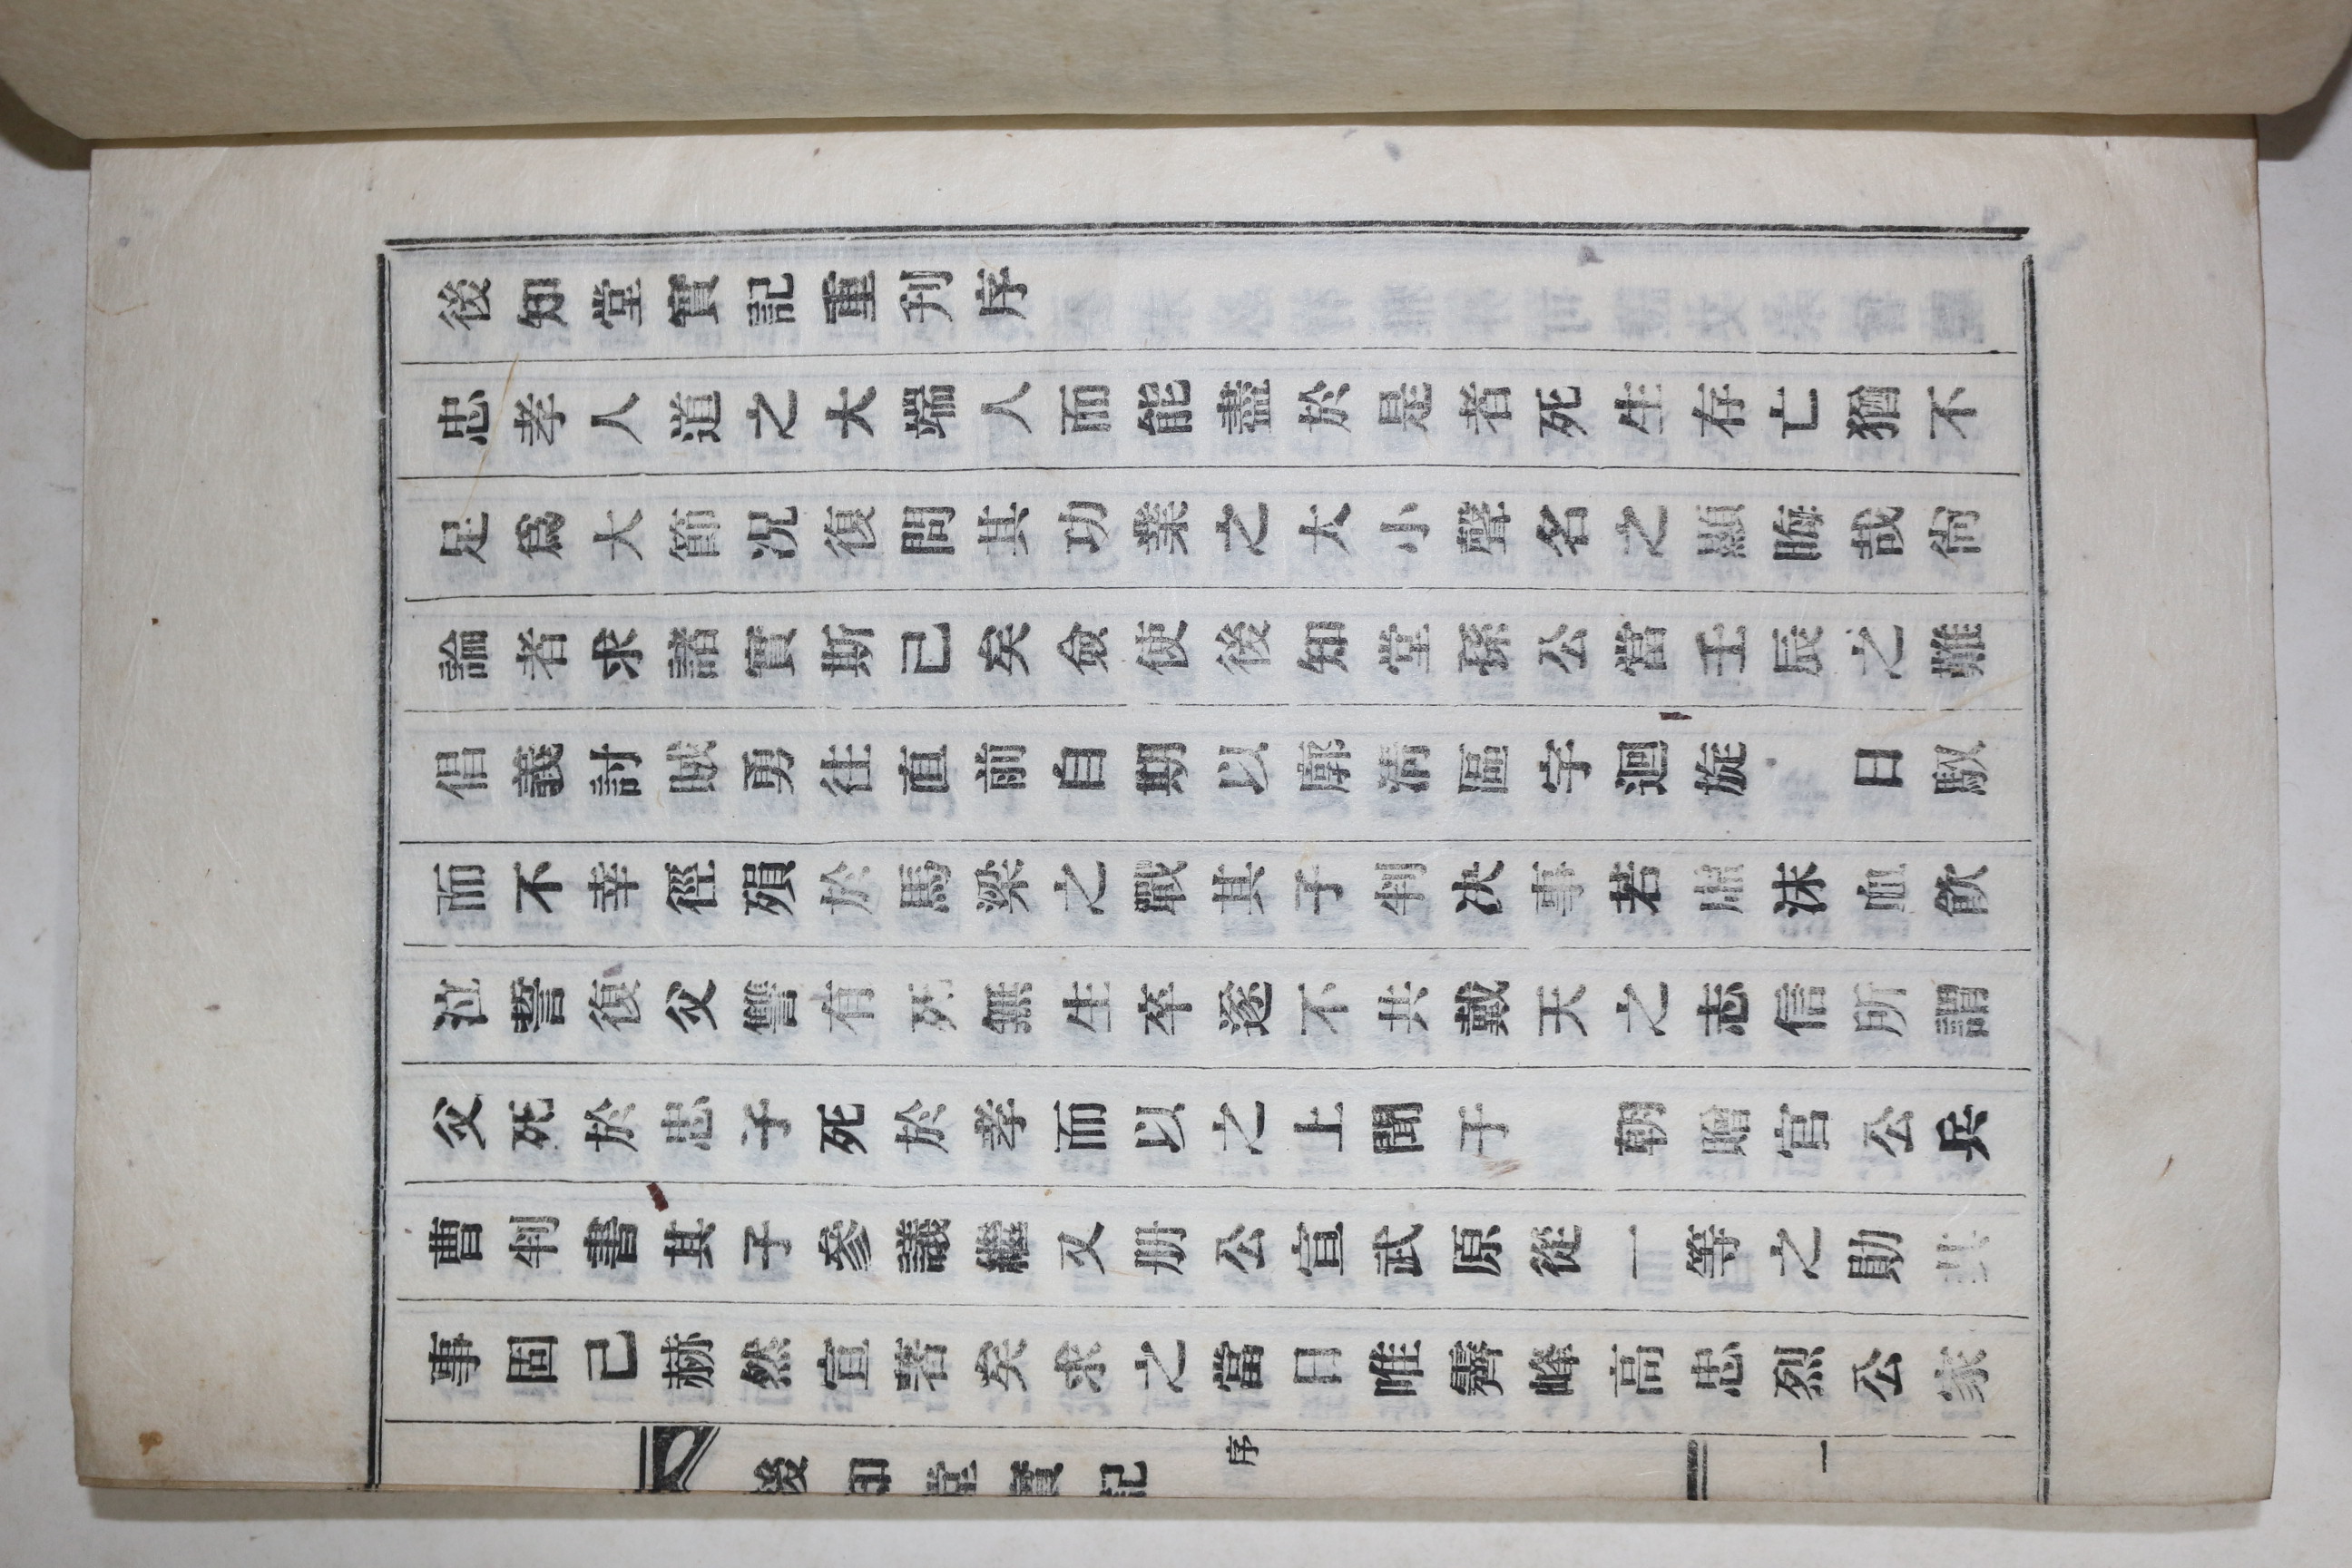 後知堂實記重刋序
忠孝人道之大端人而能盡於是者死生存亡猶不
足爲大節况復問其功業之大小聲名之顯晦哉尙
論者求諸實斯己矣僉使後知堂孫公當壬辰之難
倡義討賊勇徃直前自期以廓淸區宇迴旋 日馭
而不幸徑殞於馬梁之戰其子判决事若虛沫血飮
泣誓復父讐有死無生卒遂不共戴天之志信所謂
父死於忠子死於孝而以之上聞于 朝贈官公兵
曹判書其子參議繼又册公宣武原從一等之勛其
事固己赫然宣著矣求之當日唯霽峰高忠烈公家
後知堂實記 序 一